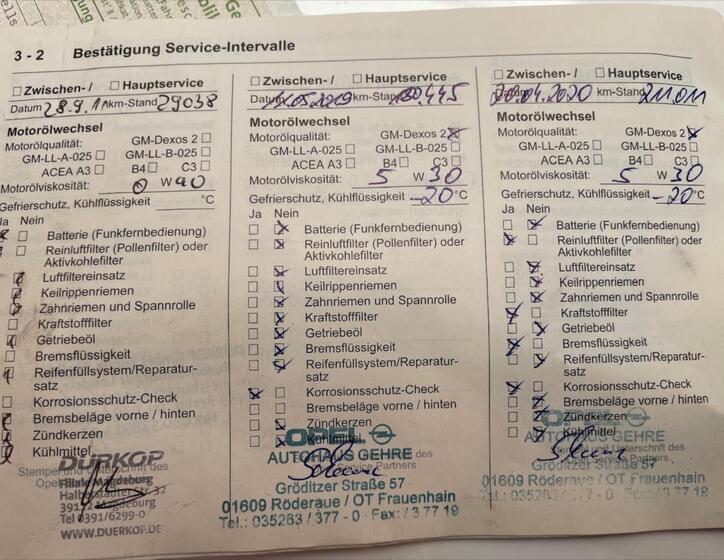 3 - 2 Bestätigung Service-Intervalle
Zwischen- / Hauptservice
Datum 28.9.11 km-Stand 29038
Motorölwechsel
Motorölqualität: GM-Dexos 2
GM-LL-A-025 GM-LL-B-025
ACEA A3 B4 C3
Motorölviskosität: 0 W 40
Gefrierschutz, Kühlflüssigkeit °C
Ja Nein
Batterie (Funkfernbedienung)
Reinluftfilter (Pollenfilter) oder
Aktivkohlefilter
Luftfiltereinsatz
Keilrippenriemen
Zahnriemen und Spannrolle
Kraftstofffilter
Getriebeöl
Bremsflüssigkeit
Reifenfüllsystem/Reparatur-
satz
Korrosionsschutz-Check
Bremsbeläge vorne / hinten
Zündkerzen
Kühlmittel
DÜRKOP
Stempel und Unterschrift des
Filiale Magdeburg
Halberstädter Str. 32
Magdeburg
Tel 0391/6299-0
WWW.DUERKOP.DE
Zwischen- / Hauptservice
Datum .05.2019 km-Stand
Motorölwechsel
Motorölqualität: GM-Dexos 2
GM-LL-A-025 GM-LL-B-025
ACEA A3 B4 C3
Motorölviskosität: 5 W 30
Gefrierschutz, Kühlflüssigkeit -20 °C
Ja Nein
Batterie (Funkfernbedienung)
Reinluftfilter (Pollenfilter) oder
Aktivkohlefilter
Luftfiltereinsatz
Keilrippenriemen
Zahnriemen und Spannrolle
Kraftstofffilter
Getriebeöl
Bremsflüssigkeit
Reifenfüllsystem/Reparatur-
satz
Korrosionsschutz-Check
Bremsbeläge vorne / hinten
Zündkerzen
Kühlmittel
OPEL
AUTOHAUS GEHRE
des
Service Partners
Gröditzer Straße 57
01609 Röderaue / OT Frauenhain
Tel.: 035263 / 377 - 0 · Fax: / 3 77 19
Zwischen- / Hauptservice
Datum 20.04.2020 km-Stand 211011
Motorölwechsel
Motorölqualität: GM-Dexos 2
GM-LL-A-025 GM-LL-B-025
ACEA A3 B4 C3
Motorölviskosität: 5 W 30
Gefrierschutz, Kühlflüssigkeit -20 °C
Ja Nein
Batterie (Funkfernbedienung)
Reinluftfilter (Pollenfilter) oder
Aktivkohlefilter
Luftfiltereinsatz
Keilrippenriemen
Zahnriemen und Spannrolle
Kraftstofffilter
Getriebeöl
Bremsflüssigkeit
Reifenfüllsystem/Reparatur-
satz
Korrosionsschutz-Check
Bremsbeläge vorne / hinten
Zündkerzen
Kühlmittel
OPEL
AUTOHAUS GEHRE
Unterschrift des
Service Partners
Gröditzer Straße 57
01609 Röderaue / OT Frauenhain
Tel.: 035263 / 377 - 0 · Fax: / 3 77 19